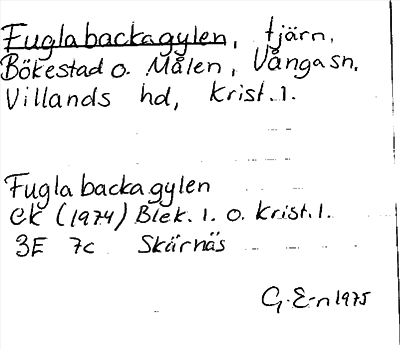 Fuglabackagylen, tjärn,
Bökestad o. Målen, Vånga sn,
Villands hd, Krist. l.
Fuglabackagylen
ek (1974) Blek. l. o. Krist. l.
3E 7c Skärnäs
G. E-n 1975